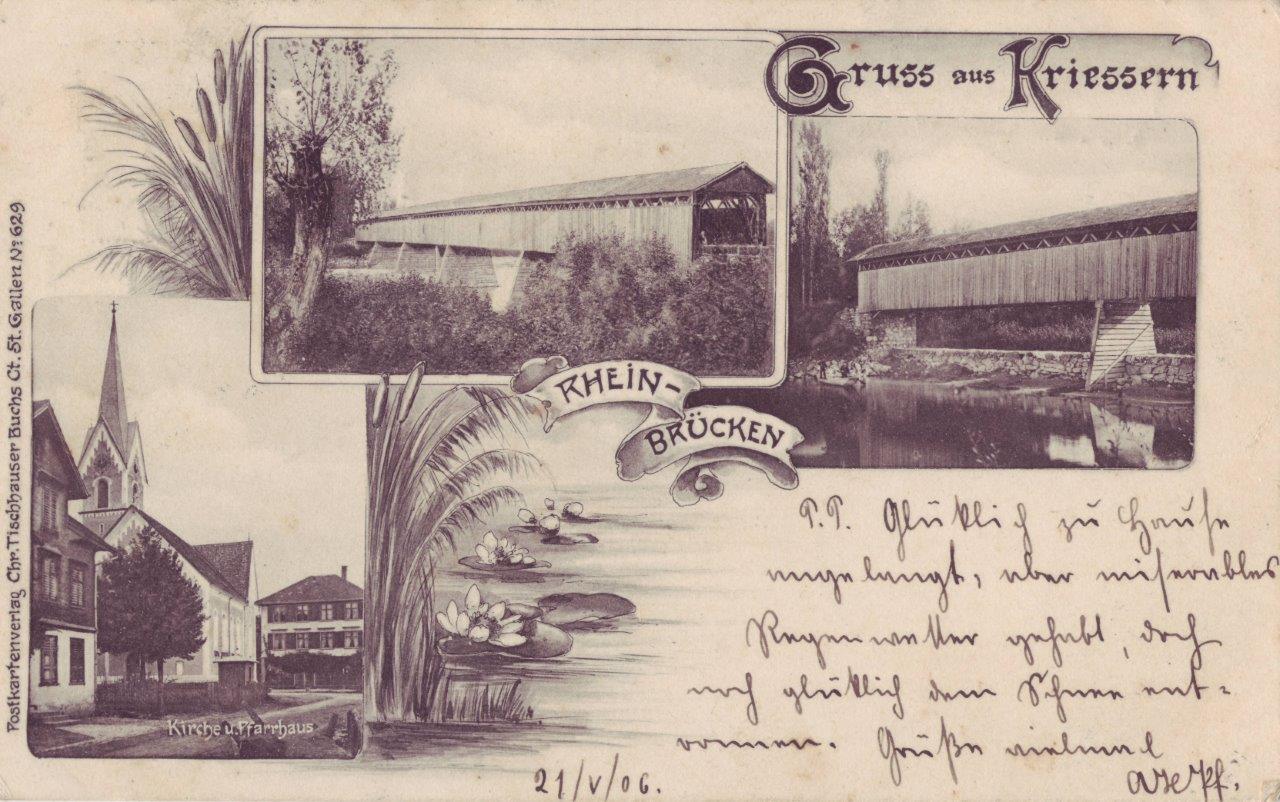 Gruss aus Kriessern
RHEIN-
BRÜCKEN
Kirche u. Pfarrhaus
Postkartenverlag Chr. Tischhauser Buchs Ct. St. Gallen No 629
P.P. Glüklich zu Hause
angelangt, aber miserables
Regenwetter gehabt, doch
noch glüklich dem Schnee ent-
ronnen. Grüße vielmal
21/V/06.